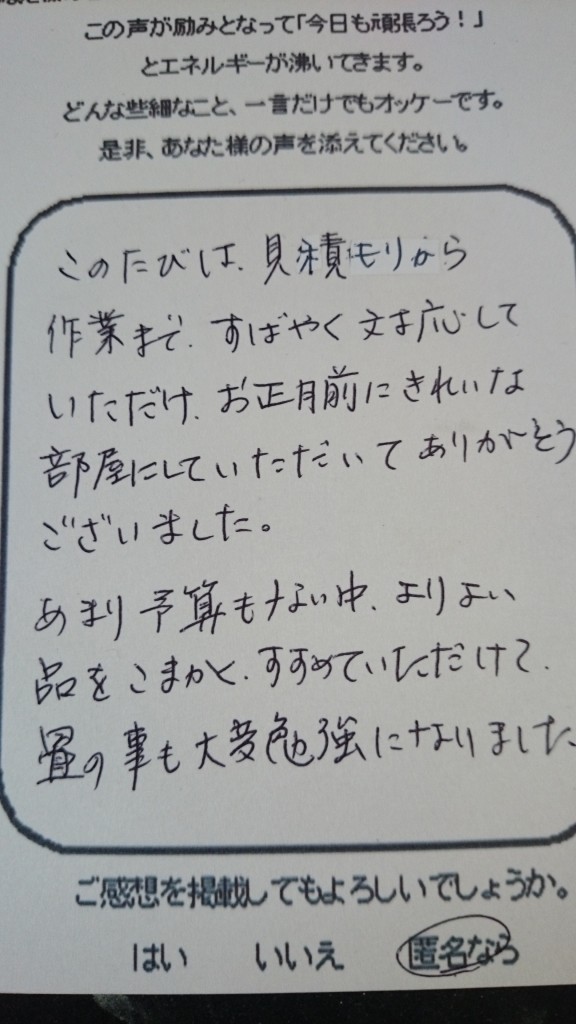 この声が励みとなって「今日も頑張ろう！」
とエネルギーが沸いてきます。
どんな些細なこと、一言だけでもオッケーです。
是非、あなた様の声を添えてください。
このたびは、見積もりから
作業まで、すばやく対応して
いただけ、お正月前にきれいな
部屋にしていただいてありがとう
ございました。
あまり予算もない中、よりよい
品をこまかく、すすめていただけて、
畳の事も大変勉強になりました
ご感想を掲載してもよろしいでしょうか。
はい いいえ 匿名なら